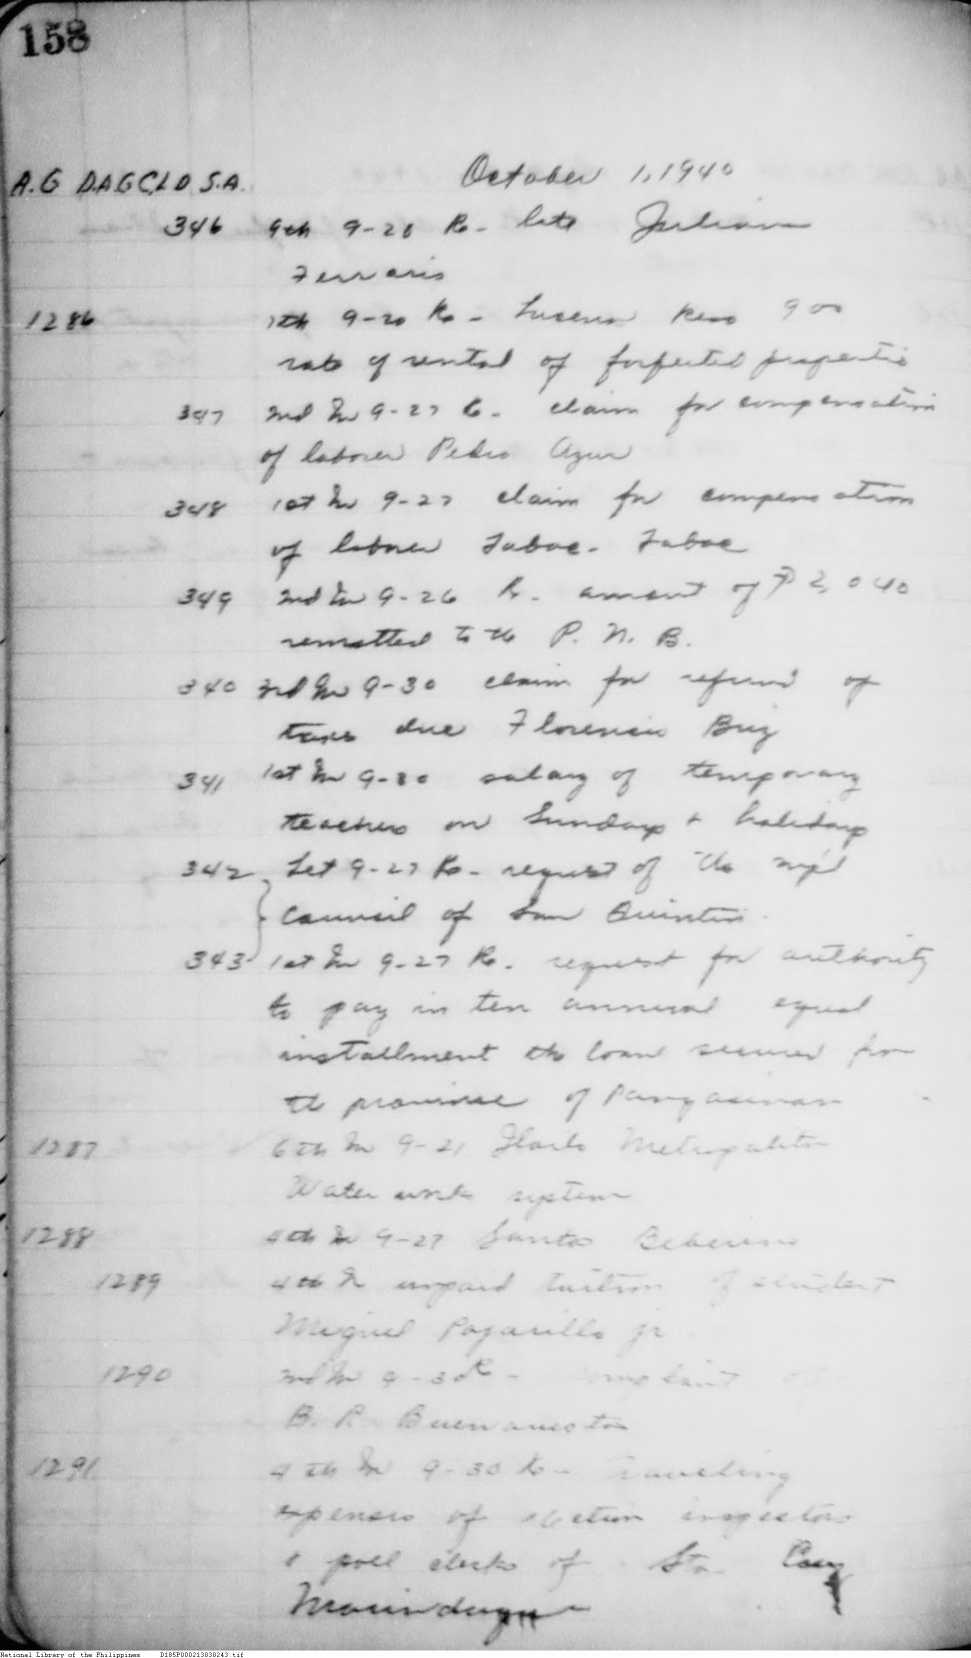 158
October 1, 1940
A.G DAGCLD S.A.
346 9th 9-20 Re- late Julian
Ferraris
1286 7th 9-20 Re-
rate of rental of forfeited properties
347 2nd In 9-27 Re- claim for compensation
of laborer Pedro Azur
348 1st In 9-27 claim for compensation
of laborer
349 2nd In 9-26 Re- amount of ₱ 2,040
remitted to the P. N. B.
340 3rd In 9-30 claim for refund of
taxes due Florencio Briz
341 1st In 9-30 salary of temporary
teachers on Sundays & holidays
342 Let 9-27 Re- request of the mp'l
Council of San Quintin
343 1st In 9-27 Re- request for authority
to pay in ten annual equal
installment the loan secured from
the province of Pangasinan
1287 6th In 9-21 Metropolitan
Water works system
1288 4th In 9-27 Santos
1289 4th In unpaid tuition of student
Miguel Pajarillo jr
1290 2nd In 9-30 Re- complaint of
B. R. Buenaventura
1291 4th In 9-30 Re- Traveling
expenses of election inspectors
& poll clerks of Sta. Cruz
Marinduque
National Library of the Philippines D185P000213838243.tif